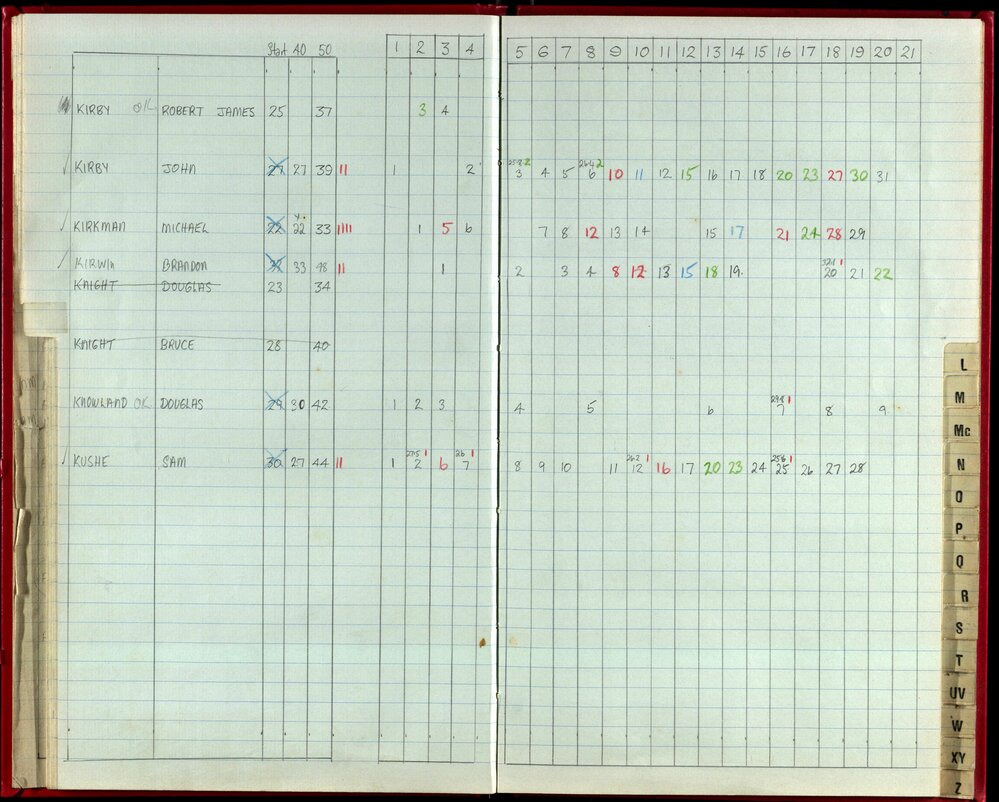 Start 40 50 1 2 3 4 5 6 7 8 9 10 11 12 13 14 15 16 17 18 19 20 21
KIRBY OK ROBERT JAMES 25 37 3 4
252 2 264 2
KIRBY JOHN 27 27 39 1 2 3 4 5 6 10 11 12 15 16 17 18 20 23 27 30 31
KIRKMAN MICHAEL 22 22 33 1 5 6 7 8 12 13 14 15 17 21 24 28 29
321 1
KIRWIN BRANDON 33 48 1 2 3 4 8 12 13 15 18 19 20 21 22
KNIGHT DOUGLAS 23 34
KNIGHT BRUCE 28 40
298 1
KNOWLAND OK DOUGLAS 29 30 42 1 2 3 4 5 6 7 8 9
275 1 261 1 262 1 256 1
KUSHE SAM 30 27 44 1 2 6 7 8 9 10 11 12 16 17 20 23 24 25 26 27 28
L
M
Mc
N
O
P
Q
R
S
T
UV
W
XY
Z